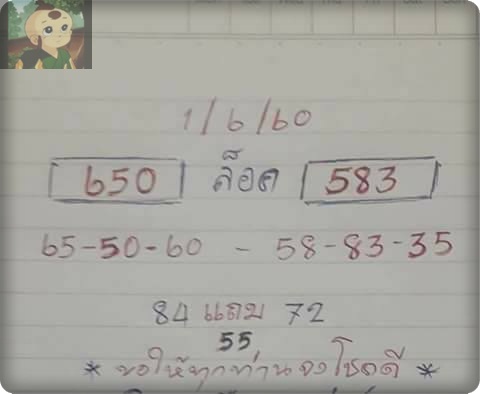 1/6/60
650 ล็อค 583
65-50-60 - 58-83-35
84 แถม 72
55
* ขอให้ทุกท่านจงโชคดี *